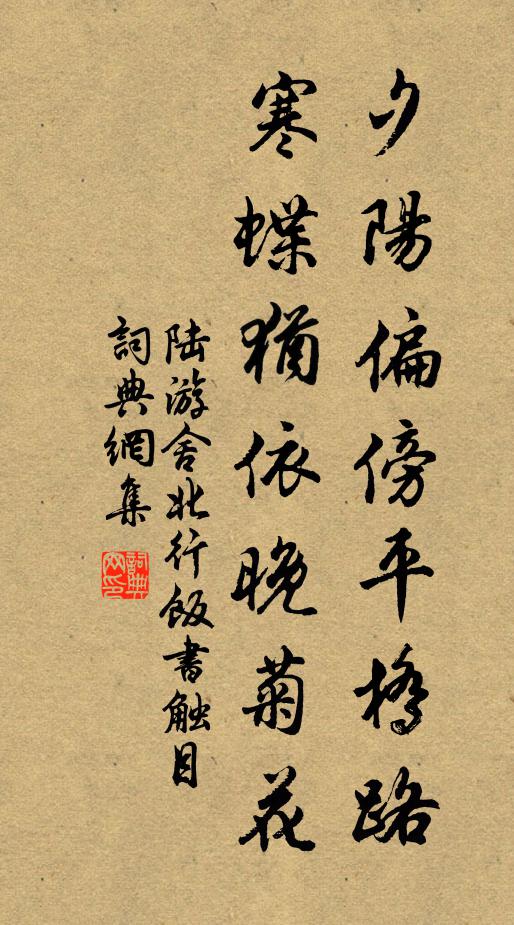 夕陽偏傍平橋路
寒蝶猶依晚菊花
陆游舍北行飯書触目
詞典網集
詞典網印